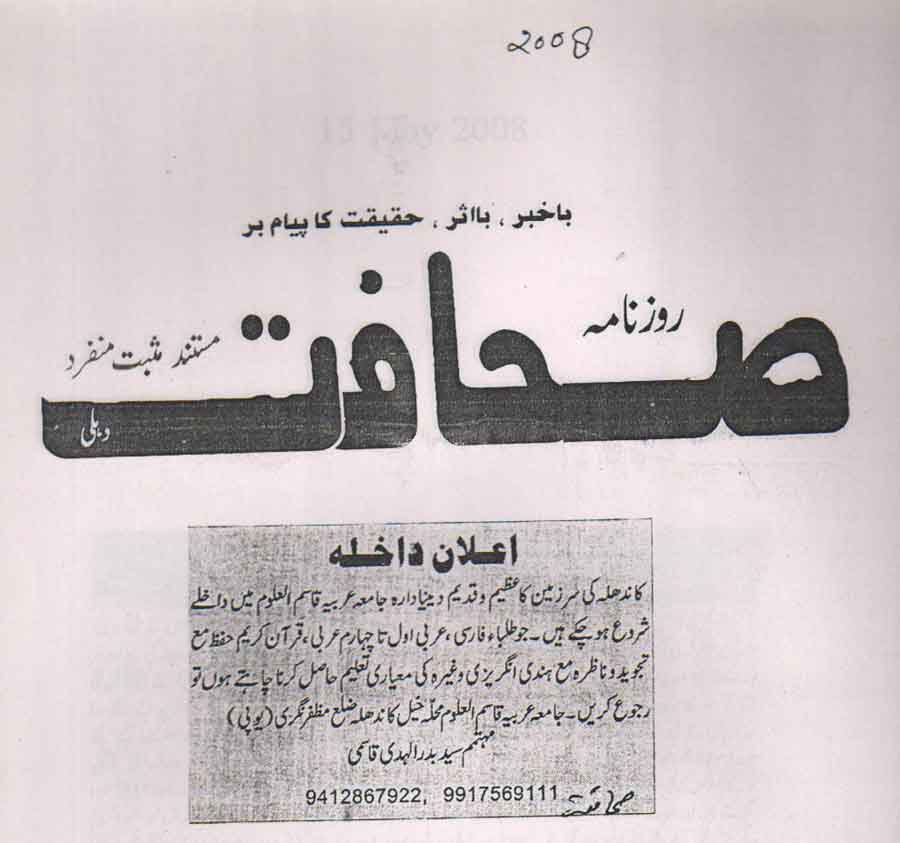 2008
15 May 2008
باخبر، بااثر، حقیقت کا پیام بر
روزنامہ
صحافت
مستند مثبت منفرد
دہلی
اعلان داخلہ
کاندھلہ کی سرزمین کا عظیم و قدیم دینیادارہ جامعہ عربیہ قاسم العلوم میں داخلے
شروع ہو چکے ہیں۔ جو طلباء فارسی، عربی اول تا چہارم عربی، قرآن کریم حفظ مع
تجوید و ناظرہ مع ہندی انگریزی وغیرہ کی معیاری تعلیم حاصل کرنا چاہتے ہوں تو
رجوع کریں۔ جامعہ عربیہ قاسم العلوم محلہ خیل کاندھلہ ضلع مظفرنگری (یوپی)
مہتمم سید بدر الہدی قاسمی
9412867922, 9917569111
صحافت